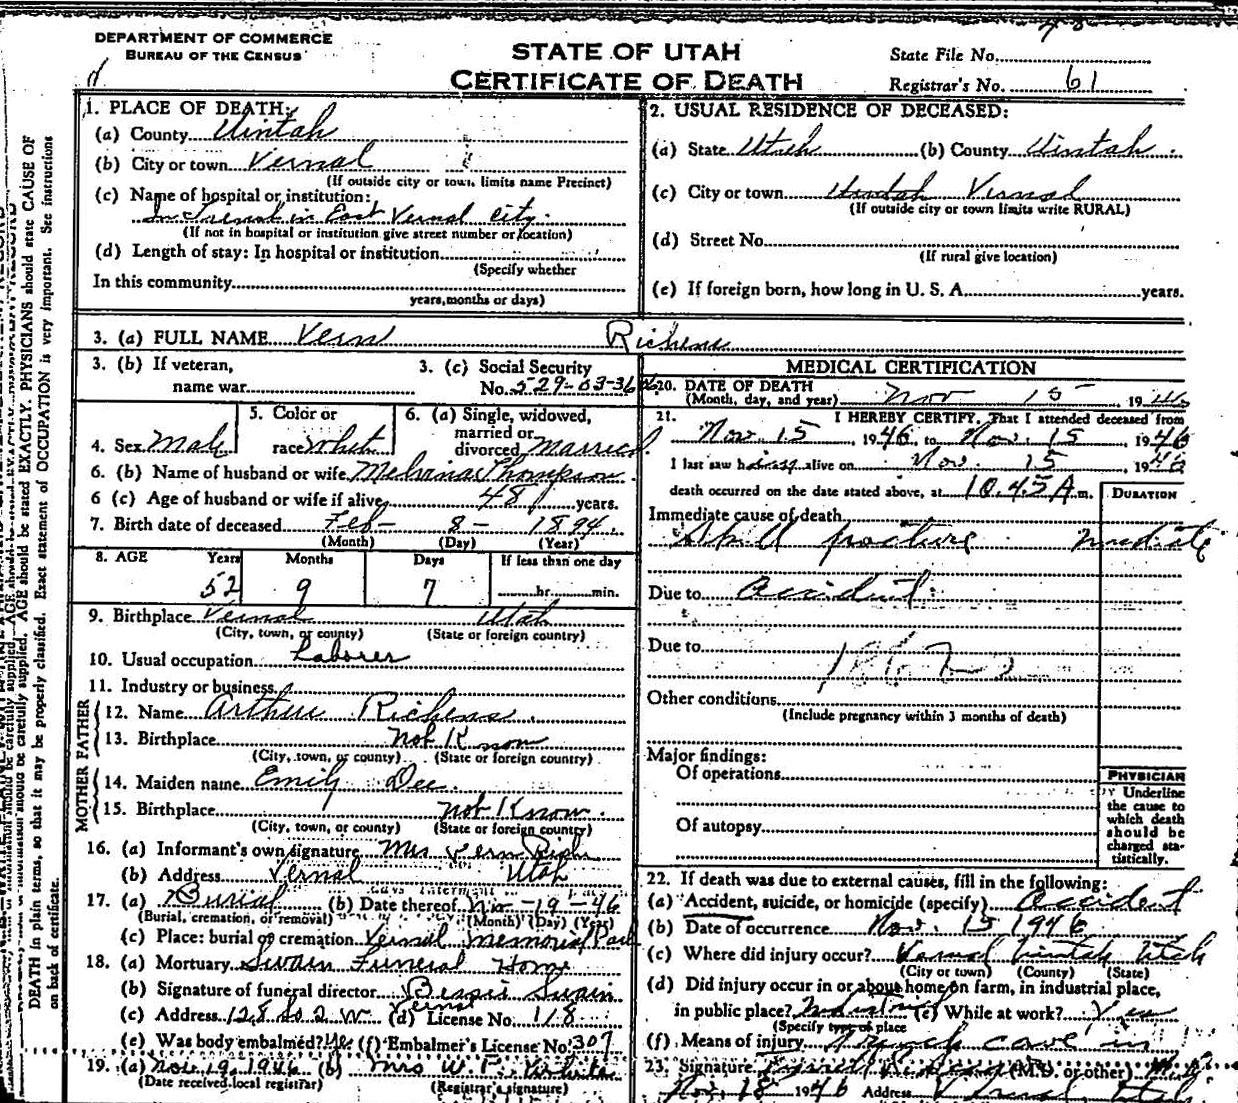 DEPARTMENT OF COMMERCE
BUREAU OF THE CENSUS
STATE OF UTAH
CERTIFICATE OF DEATH
State File No.
Registrar's No. 61
1. PLACE OF DEATH:
(a) County Uintah
(b) City or town Vernal
(If outside city or town limits name Precinct)
(c) Name of hospital or institution:
In Trench in East Vernal City.
(If not in hospital or institution give street number or location)
(d) Length of stay: In hospital or institution
(Specify whether
In this community
years, months or days)
2. USUAL RESIDENCE OF DECEASED:
(a) State Utah (b) County Uintah
(c) City or town Uintah Vernal
(If outside city or town limits write RURAL)
(d) Street No.
(If rural give location)
(e) If foreign born, how long in U. S. A. years.
3. (a) FULL NAME Vern Richens
3. (b) If veteran,
name war
3. (c) Social Security
No. 529-03-36
4. Sex Male
5. Color or
race White
6. (a) Single, widowed,
married or
divorced Married
6. (b) Name of husband or wife Melvina Thompson
6 (c) Age of husband or wife if alive 48 years.
7. Birth date of deceased Feb - 8 - 1894
(Month) (Day) (Year)
8. AGE Years Months Days If less than one day
52 9 7 hr. min.
9. Birthplace Vernal Utah
(City, town, or county) (State or foreign country)
10. Usual occupation Laborer
11. Industry or business
FATHER
12. Name Arthur Richens
13. Birthplace Not Know
(City, town, or county) (State or foreign country)
MOTHER
14. Maiden name Emily Dee
15. Birthplace Not Know
(City, town, or county) (State or foreign country)
16. (a) Informant's own signature Mrs Vern
(b) Address Vernal Utah
17. (a) Burial (b) Date thereof Nov - 19 - 46
(Burial, cremation, or removal) (Month) (Day) (Year)
(c) Place: burial or cremation Vernal Memorial Park
18. (a) Mortuary Swain Funeral Home
(b) Signature of funeral director Bessie Swain
(c) Address 128 So 2 W Vernal (d) License No. 118
(e) Was body embalmed? Yes (f) Embalmer's License No. 307
19. (a) Nov. 19, 1946 (b) Mrs W. F.
(Date received local registrar) (Registrar's signature)
MEDICAL CERTIFICATION
20. DATE OF DEATH
(Month, day, and year) Nov 15 1946
21. I HEREBY CERTIFY, That I attended deceased from
Nov. 15, 1946, to Nov. 15 1946
I last saw h alive on Nov. 15, 1946
death occurred on the date stated above, at 10.45 A m.
DURATION
Immediate cause of death
Skull fracture
Due to Accident
Due to
Other conditions
(Include pregnancy within 3 months of death)
Major findings:
Of operations
Of autopsy
PHYSICIAN
Underline
the cause to
which death
should be
charged sta-
tistically.
22. If death was due to external causes, fill in the following:
(a) Accident, suicide, or homicide (specify) Accident
(b) Date of occurrence Nov. 15 1946
(c) Where did injury occur? Vernal Uintah Utah
(City or town) (County) (State)
(d) Did injury occur in or about home, on farm, in industrial place,
in public place? Industrial (e) While at work? Yes
(Specify type of place
(f) Means of injury cave in
23. Signature (M.D. or other) M.D.
Nov. 18 1946 Address Vernal, Utah
DEATH in plain terms, so that it may be properly classified. Exact statement of OCCUPATION is very important. See instructions
on back of certificate.